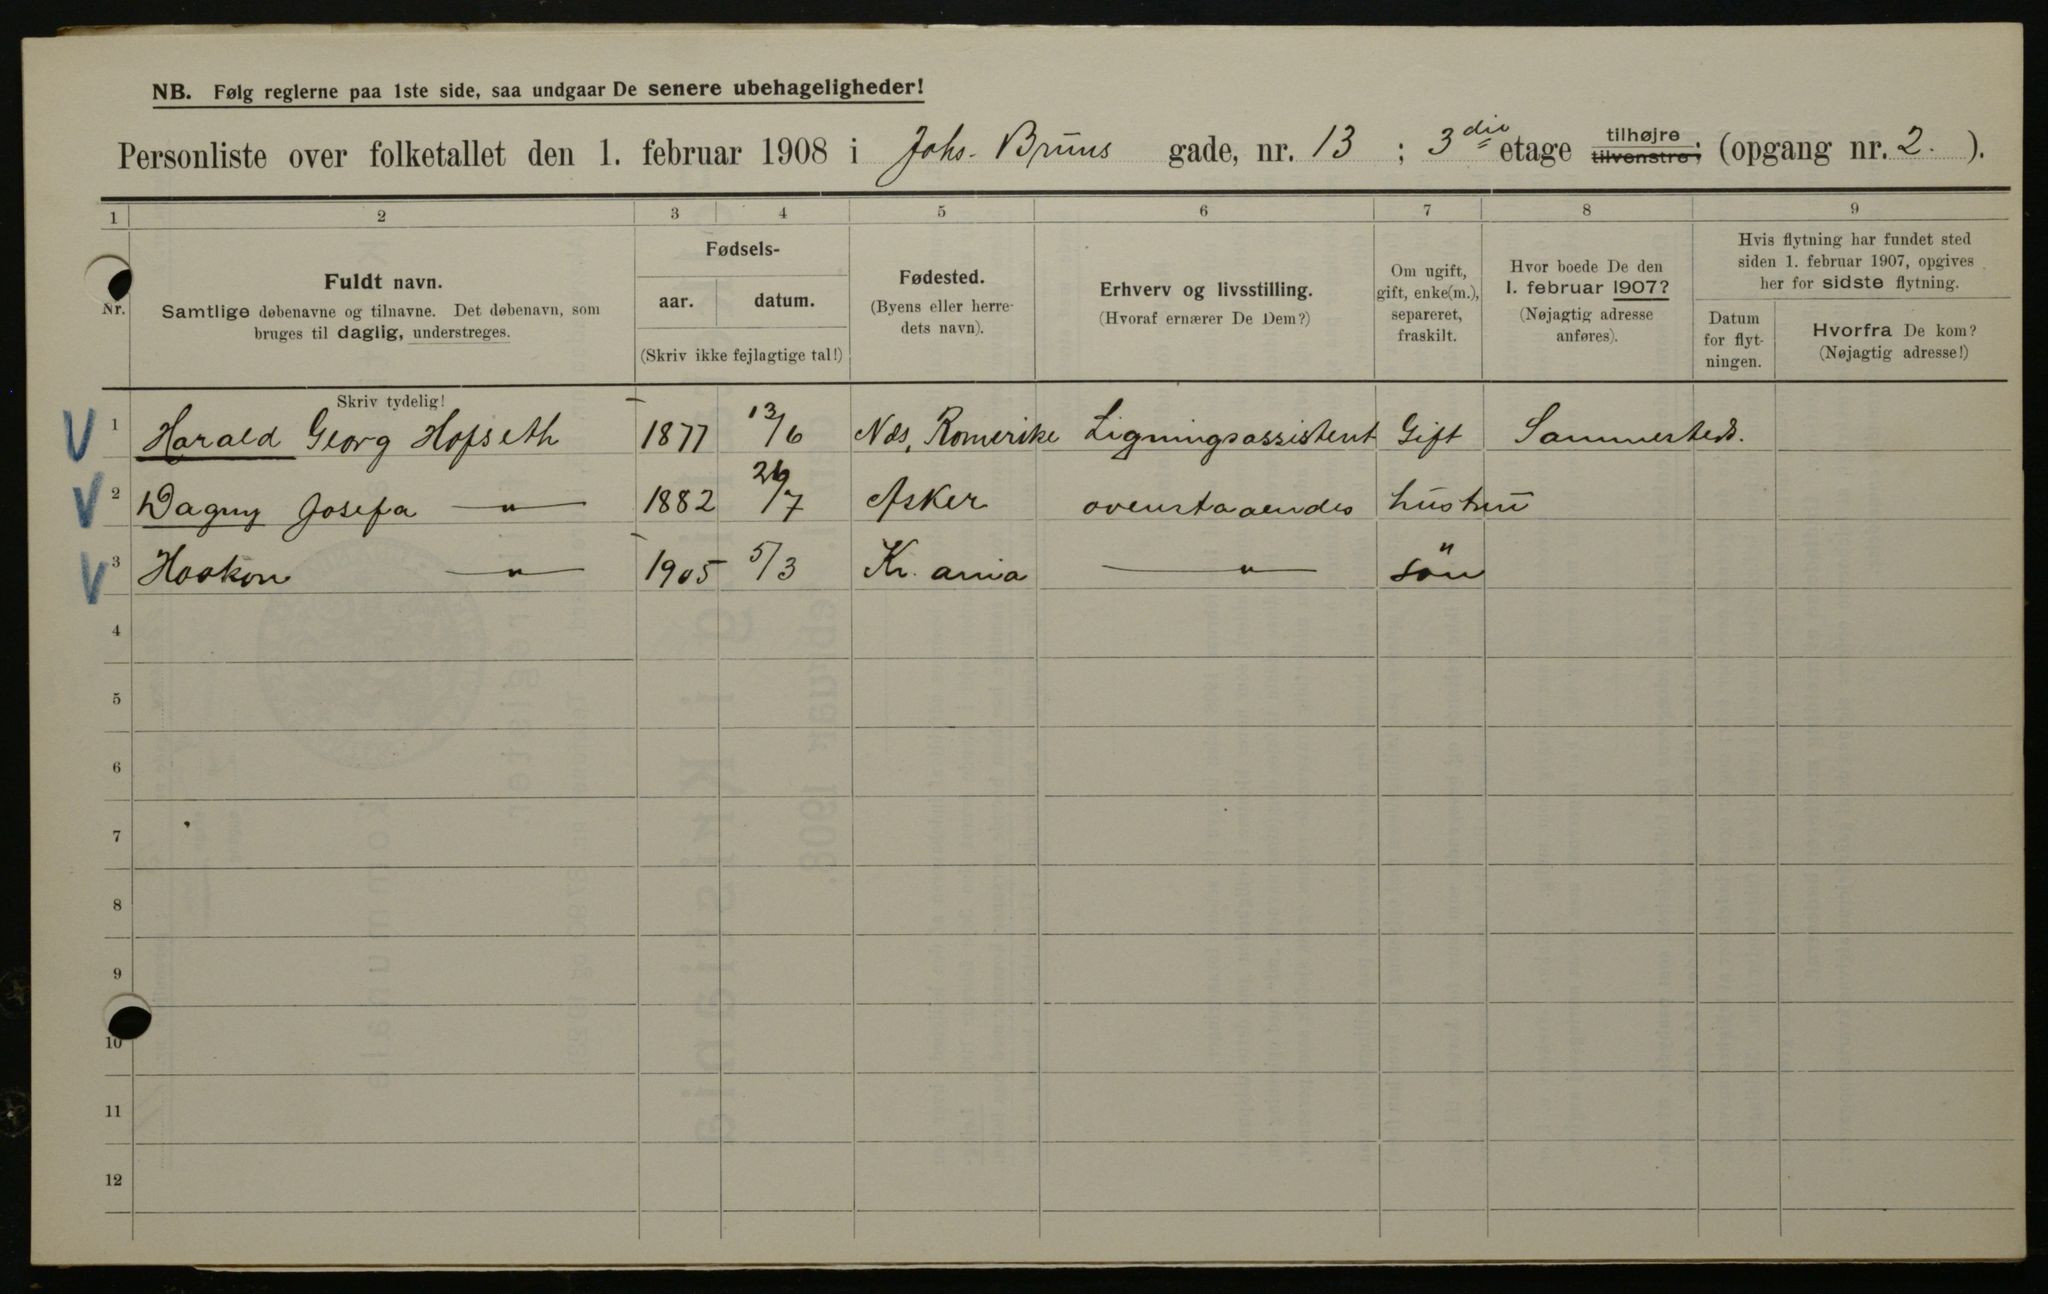 NB. Følg reglerne paa 1ste side, saa undgaar De senere ubehageligheder!
Personliste over folketallet den 1. februar 1908 i Johs. Bruns gade, nr. 13 ; 3die etage tilhøjre tilvenstre; (opgang nr. 2. ).
1 2 3 4 5 6 7 8 9
Nr.
Fuldt navn.
Samtlige døbenavne og tilnavne. Det døbenavn, som
bruges til daglig, understreges.
Fødsels-
aar. datum.
(Skriv ikke fejlagtige tal!)
Fødested.
(Byens eller herre-
dets navn).
Erhverv og livsstilling.
(Hvoraf ernærer De Dem?)
Om ugift,
gift, enke(m.),
separeret,
fraskilt.
Hvor boede De den
1. februar 1907?
(Nøjagtig adresse
anføres).
Hvis flytning har fundet sted
siden 1. februar 1907, opgives
her for sidste flytning.
Datum
for flyt-
ningen.
Hvorfra De kom?
(Nøjagtig adresse!)
Skriv tydelig!
V 1 Harald Georg Hofseth 1877 13/6 Næs, Romerike Ligningsassistent Gift Sammesteds.
V 2 Dagny Josefa — " — 1882 26/7 Asker ovenstaaendes hustru
V 3 Haakon — " — 1905 5/3 Kr. ania — " — søn
4
5
6
7
8
9
10
11
12